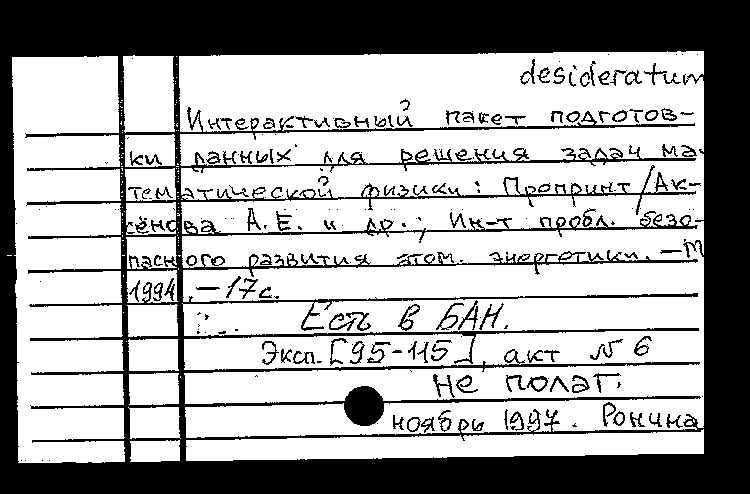 desideratum
Интерактивный пакет подготов-
ки данных для решения задач ма-
тематической физики: Препринт / Ак-
сёнова А.Е. и др.; Ин-т пробл. безо-
пасного развития атом. энергетики. — М
1994. — 17 с.
Есть в БАН.
Эксп. [95-115], акт № 6
Не полаг.
ноябрь 1997. Ронина